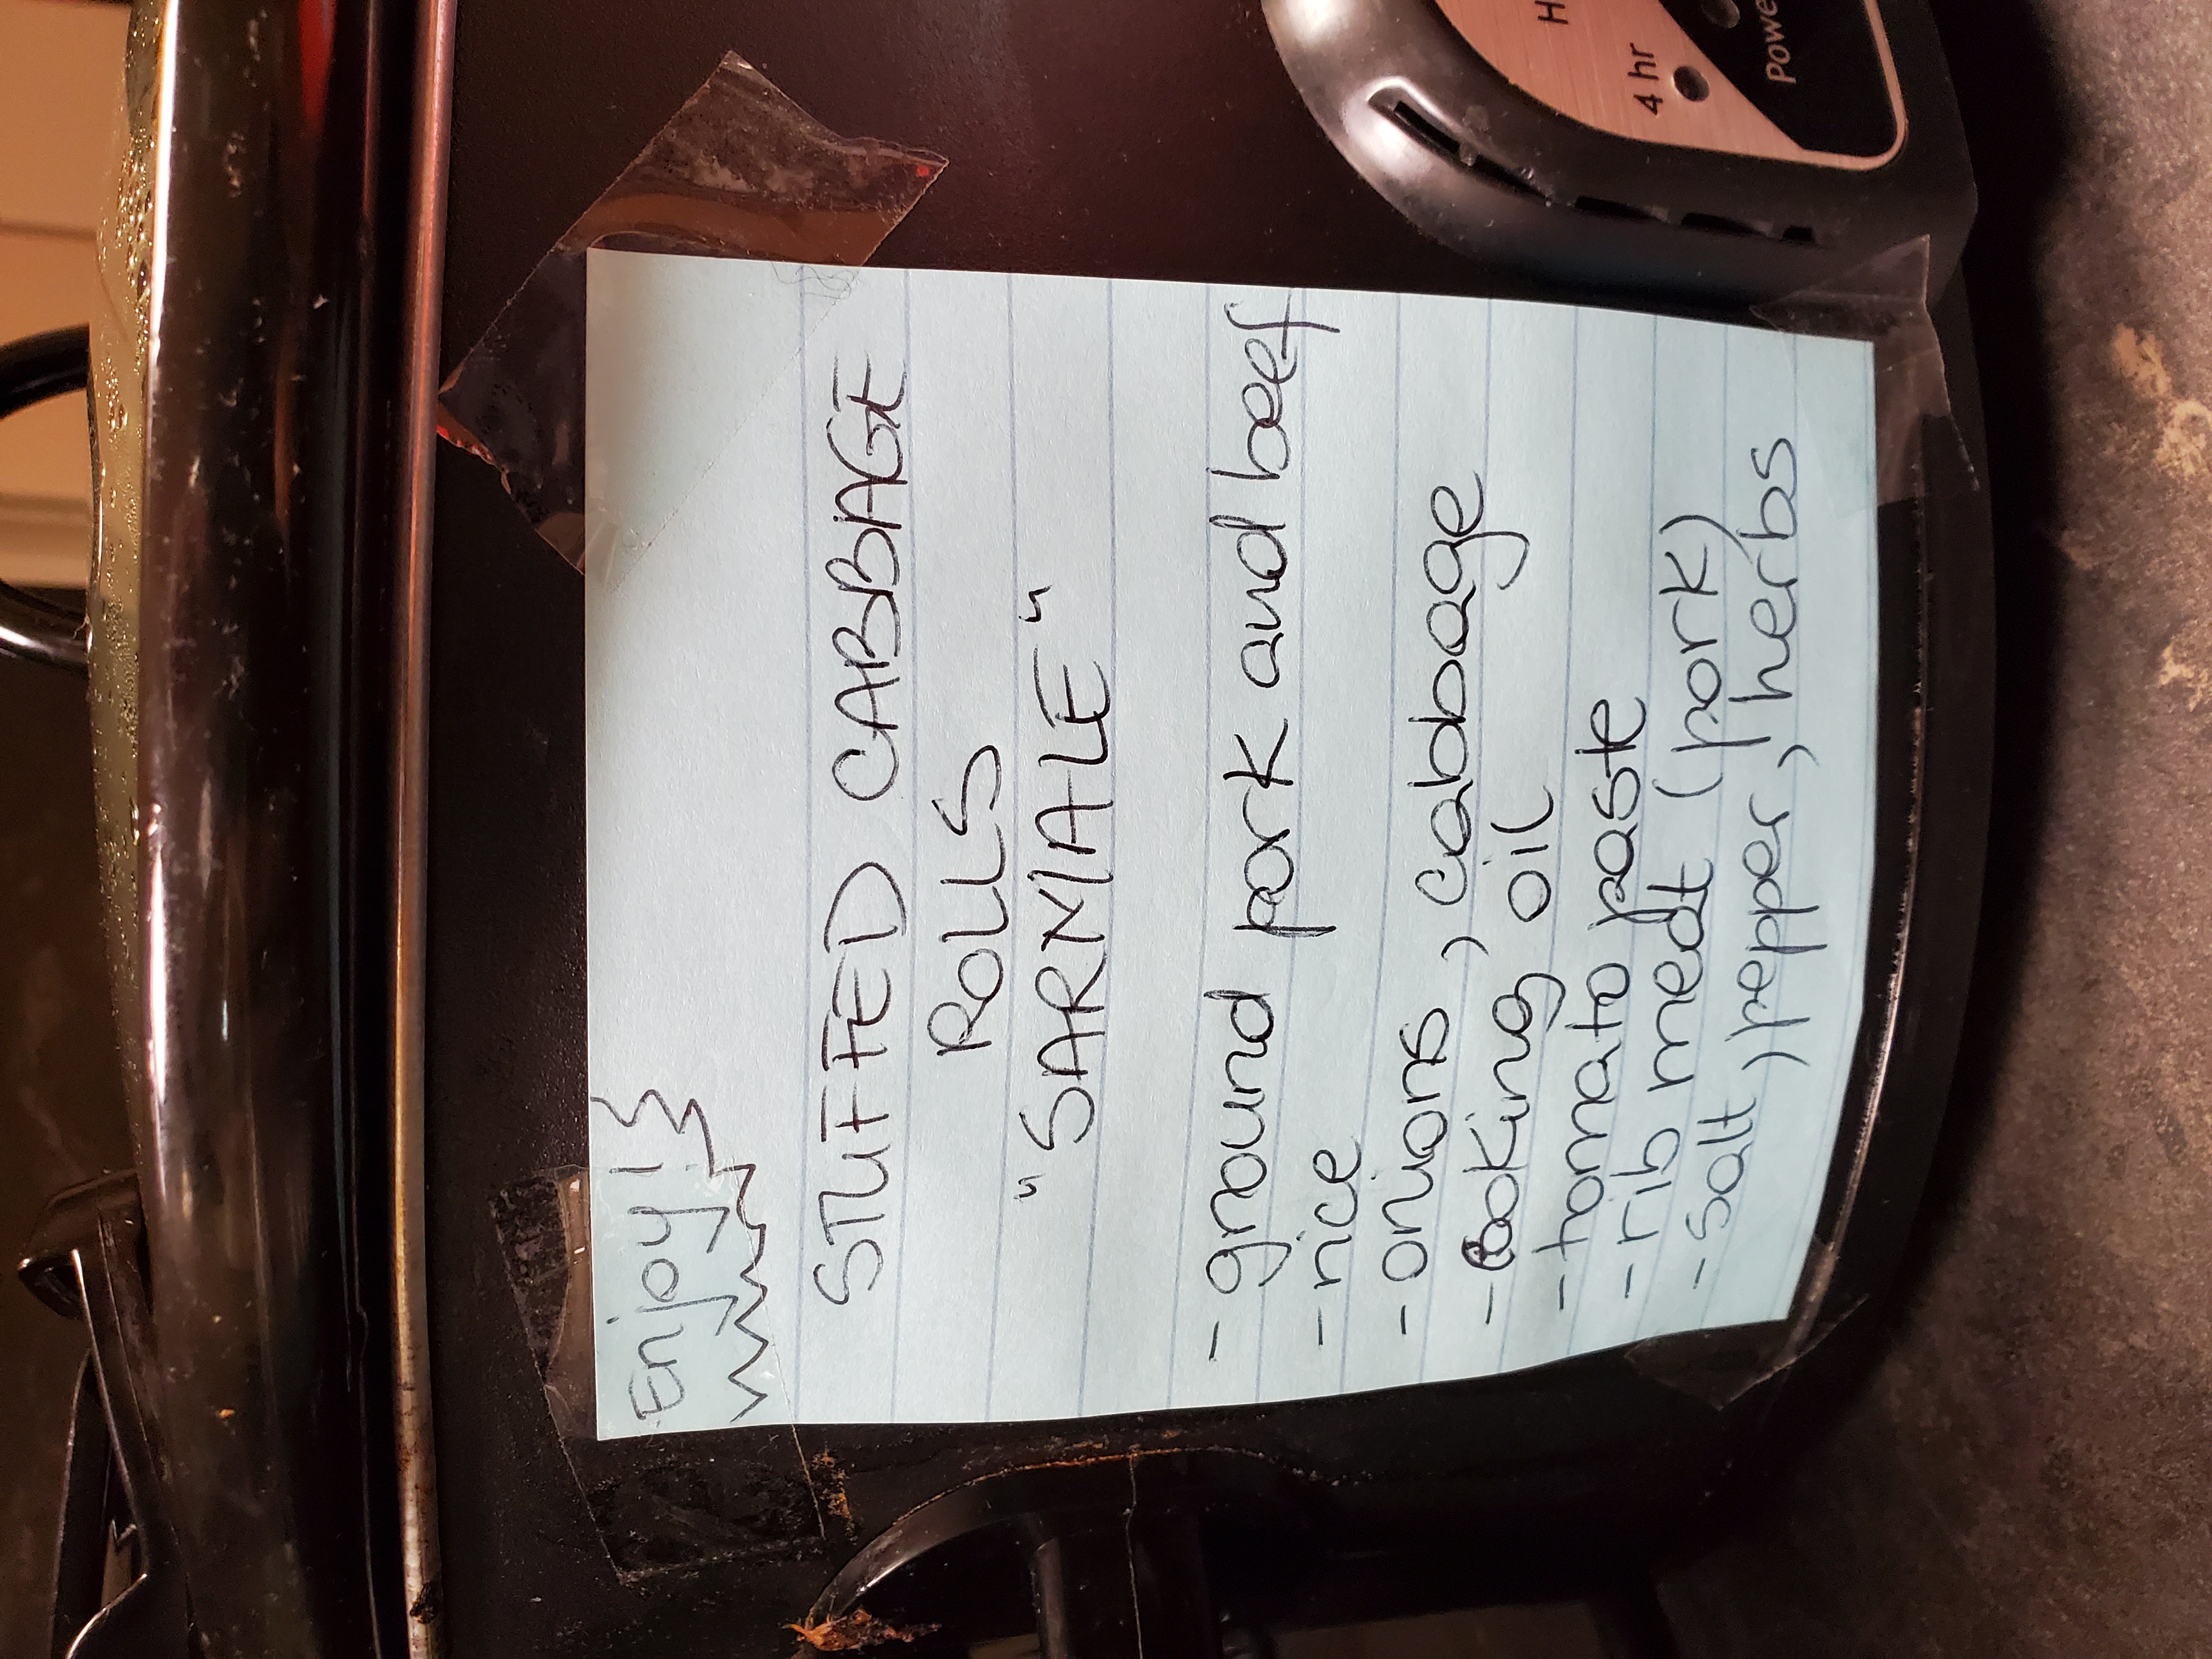 Enjoy!
STUFFED CABBAGE
ROLLS
"SARMALE"
- ground pork and beef
- rice
- onions, cabbage
- cooking oil
- tomato paste
- rib meat (pork)
- salt, pepper, herbs
4 hr
H
Powe